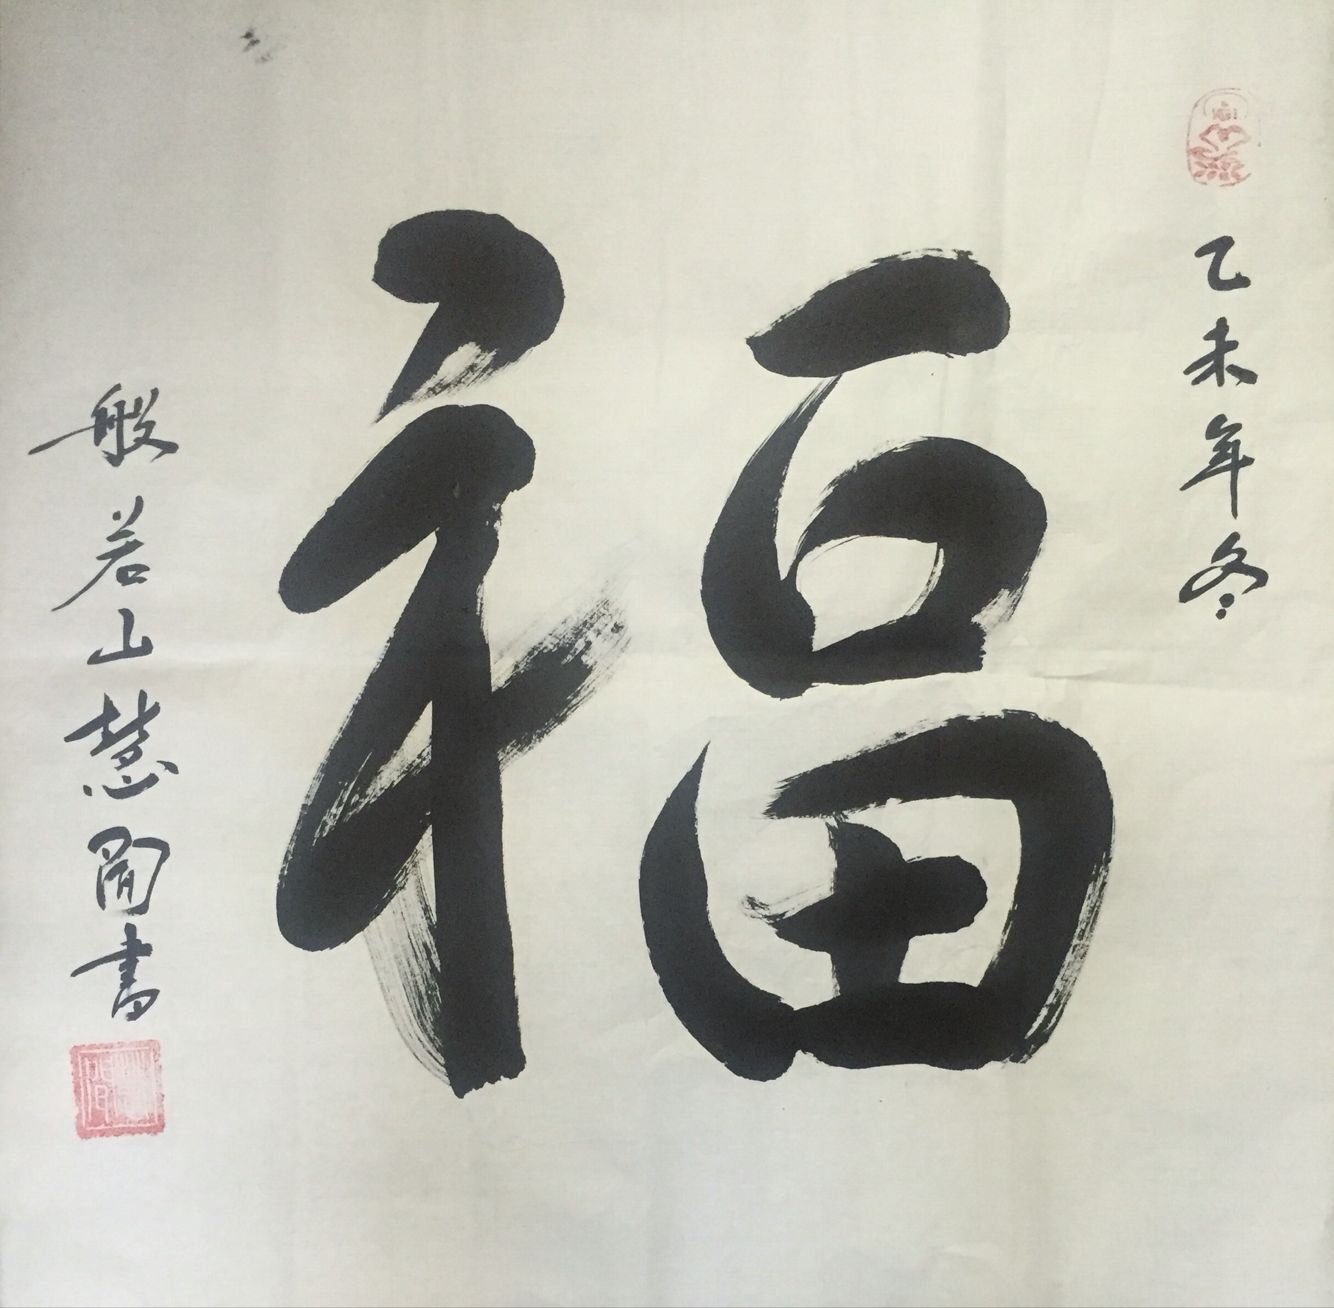 乙未年冬
福
般若山慧閒書